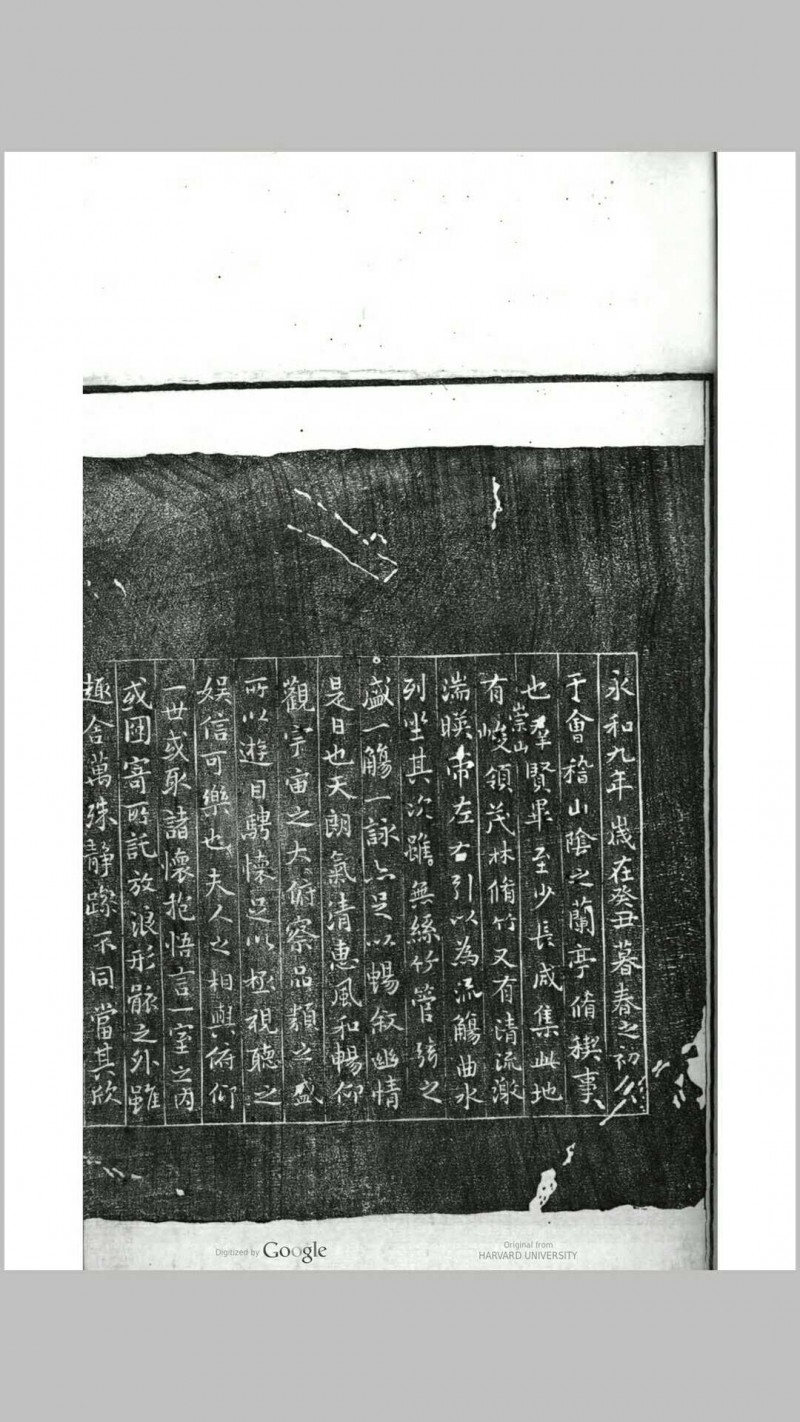 永和九年歲在癸丑暮春之初會
于會稽山陰之蘭亭脩稧事
也羣賢畢至少長咸集此地
有崇山峻領茂林脩竹又有清流激
湍暎帶左右引以為流觴曲水
列坐其次雖無絲竹管弦之
盛一觴一詠亦足以暢敘幽情
是日也天朗氣清惠風和暢仰
觀宇宙之大俯察品類之盛
所以遊目騁懷足以極視聽之
娛信可樂也夫人之相與俯仰
一世或取諸懷抱悟言一室之內
或因寄所託放浪形骸之外雖
趣舍萬殊靜躁不同當其欣
Digitized by Google
Original from
HARVARD UNIVERSITY